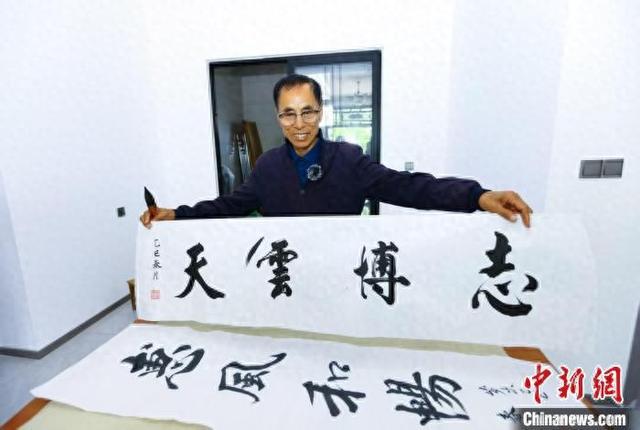 志博雲天
乙巳
惠風和暢
中新网
Chinanews.com